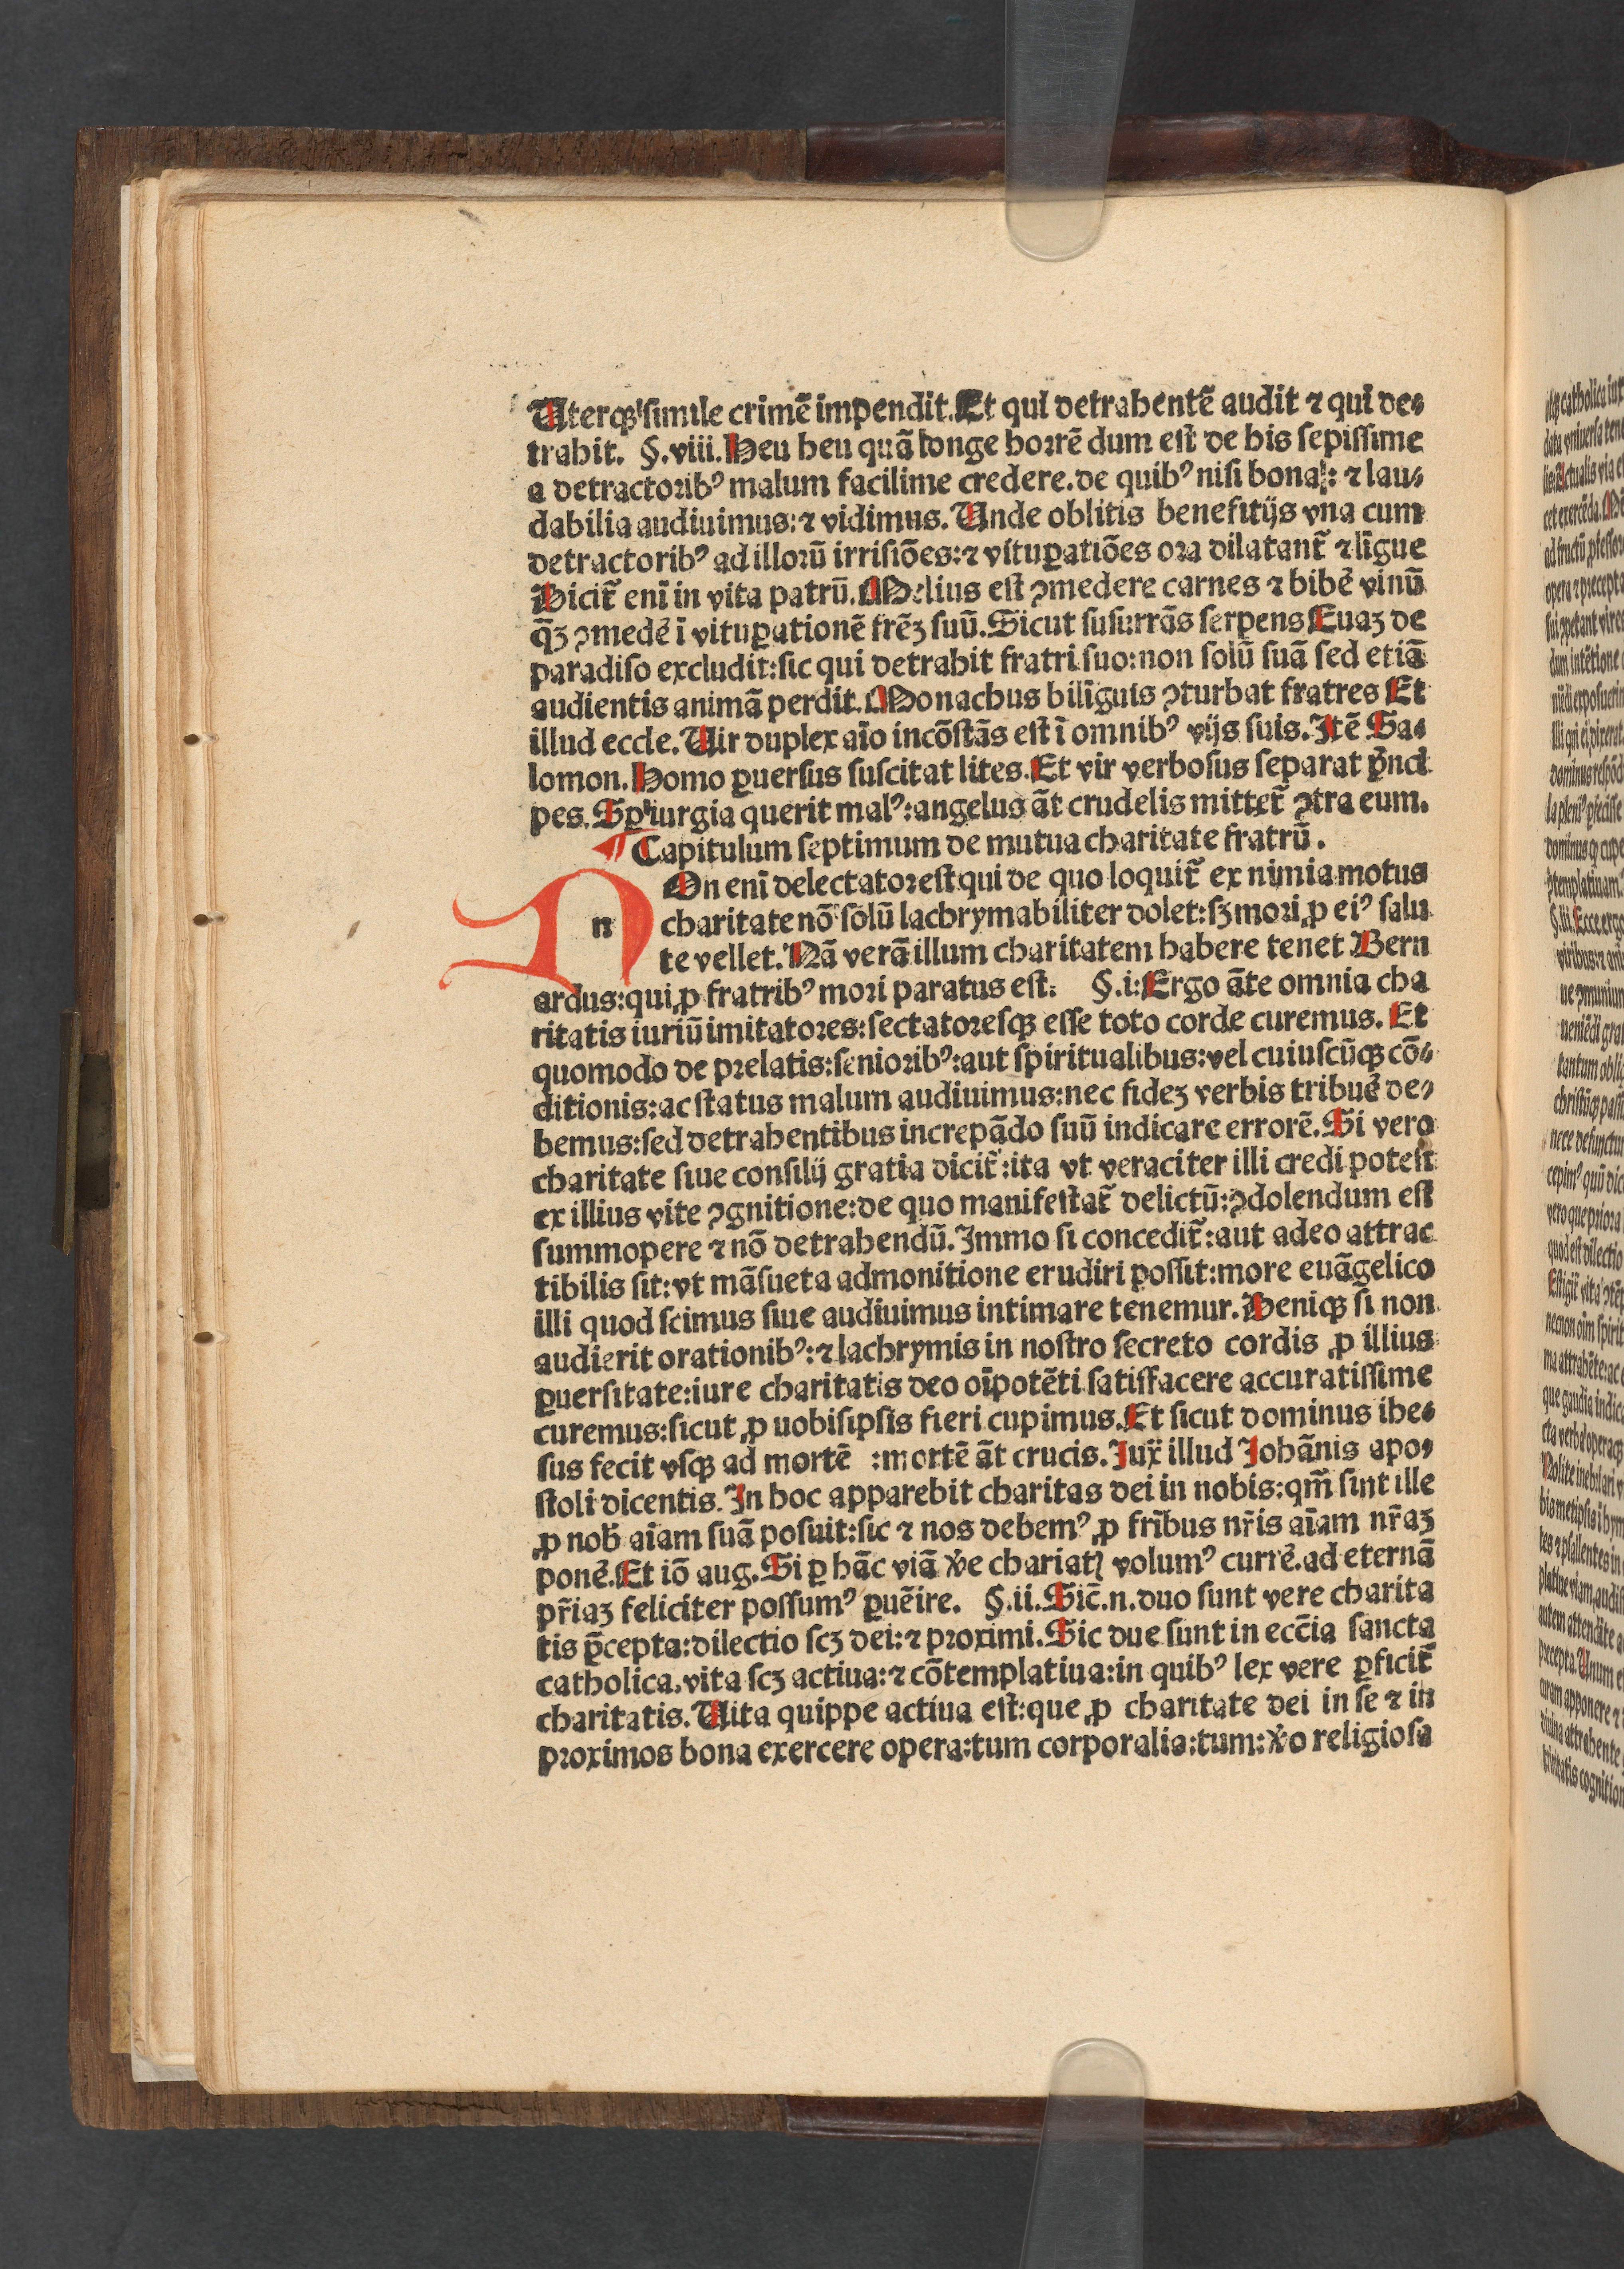 Uterqꝫ simile crimē impendit. Et qui detrahentē audit ⁊ qui de⸗
trahit. §. viii. Heu heu quā longe horrē dum est de his sepissime
a detractoribꝰ malum facilime credere. de quibꝰ nisi bona: ⁊ lau⸗
dabilia audiuimus: ⁊ vidimus. Unde oblitis benefitijs vna cum
detractoribꝰ ad illorū irrisiōes: ⁊ vituꝑatiōes ora dilatant̃ ⁊ līgue
Dicit̃ enī in vita patrū. Melius est ꝯmedere carnes ⁊ bibē vinū
q̄ꝫ ꝯmedē ī vituꝑationē frēꝫ suū. Sicut susurrās serpens Euaꝫ de
paradiso excludit: sic qui detrahit fratri suo: non solū suā sed etiā
audientis animā perdit. Monachus bilīguis ꝯturbat fratres Et
illud eccle. Uir duplex aīo incōstās est ī omnibꝰ vijs suis. Itē Sa⸗
lomon. Homo ꝑuersus suscitat lites. Et vir verbosus separat pͥnci
pes. Sꝑ iurgia querit malꝰ: angelus āt crudelis mittet̃ ꝯtra eum.
¶ Capitulum septimum de mutua charitate fratrū.
n On enī delectator est qui de quo loquit̃ ex nimia motus
charitate nō solū lachrymabiliter dolet: sꝫ mori ꝓ eiꝰ salu
te vellet. Nā verā illum charitatem habere tenet Bern
ardus: qui ꝓ fratribꝰ mori paratus est. §. i: Ergo āte omnia cha
ritatis iuriū imitatores: sectatoresqꝫ esse toto corde curemus. Et
quomodo de prelatis: senioribꝰ: aut spiritualibus: vel cuiuscūqꝫ cō⸗
ditionis: ac status malum audiuimus: nec fideꝫ verbis tribuē de⸗
bemus: sed detrahentibus increpādo suū indicare errorē. Si vero
charitate siue consilij gratia dicit̃: ita vt veraciter illi credi potest
ex illius vite ꝯgnitione: de quo manifestat̃ delictū: ꝯdolendum est
summopere ⁊ nō detrahendū. Immo si concedit̃: aut adeo attrac
tibilis sit: vt māsueta admonitione erudiri possit: more euāgelico
illi quod scimus siue audiuimus intimare tenemur. Deniqꝫ si non
audierit orationibꝰ: ⁊ lachrymis in nostro secreto cordis ꝓ illius
ꝑuersitate: iure charitatis deo oīpotēti satisfacere accuratissime
curemus: sicut ꝓ uobisipsis fieri cupimus. Et sicut dominus ihe⸗
sus fecit vsqꝫ ad mortē : mortē āt crucis. Iux̄ illud Iohānis apo⸗
stoli dicentis. In hoc apparebit charitas dei in nobis: qm̄ sint ille
ꝓ nob̄ aīam suā posuit: sic ⁊ nos debemꝰ ꝓ frībus nr̄is aīam nr̄aꝫ
ponē. Et iō aug. Si ꝑ hāc viā v̄e chariatꝭ volumꝰ currē. ad eternā
pr̄iaꝫ feliciter possumꝰ ꝑuēire. §. ii. Sic̄. n. duo sunt vere charita
tis p̄cepta: dilectio scꝫ dei: ⁊ proximi. Sic due sunt in ecc̄ia sancta
catholica. vita scꝫ actiua: ⁊ cōtemplatiua: in quibꝰ lex vere ꝑficit̃
charitatis. Uita quippe actiua est: que ꝓ charitate dei in se ⁊ in
proximos bona exercere opera: tum corporalia: tum: v̄o religiosa